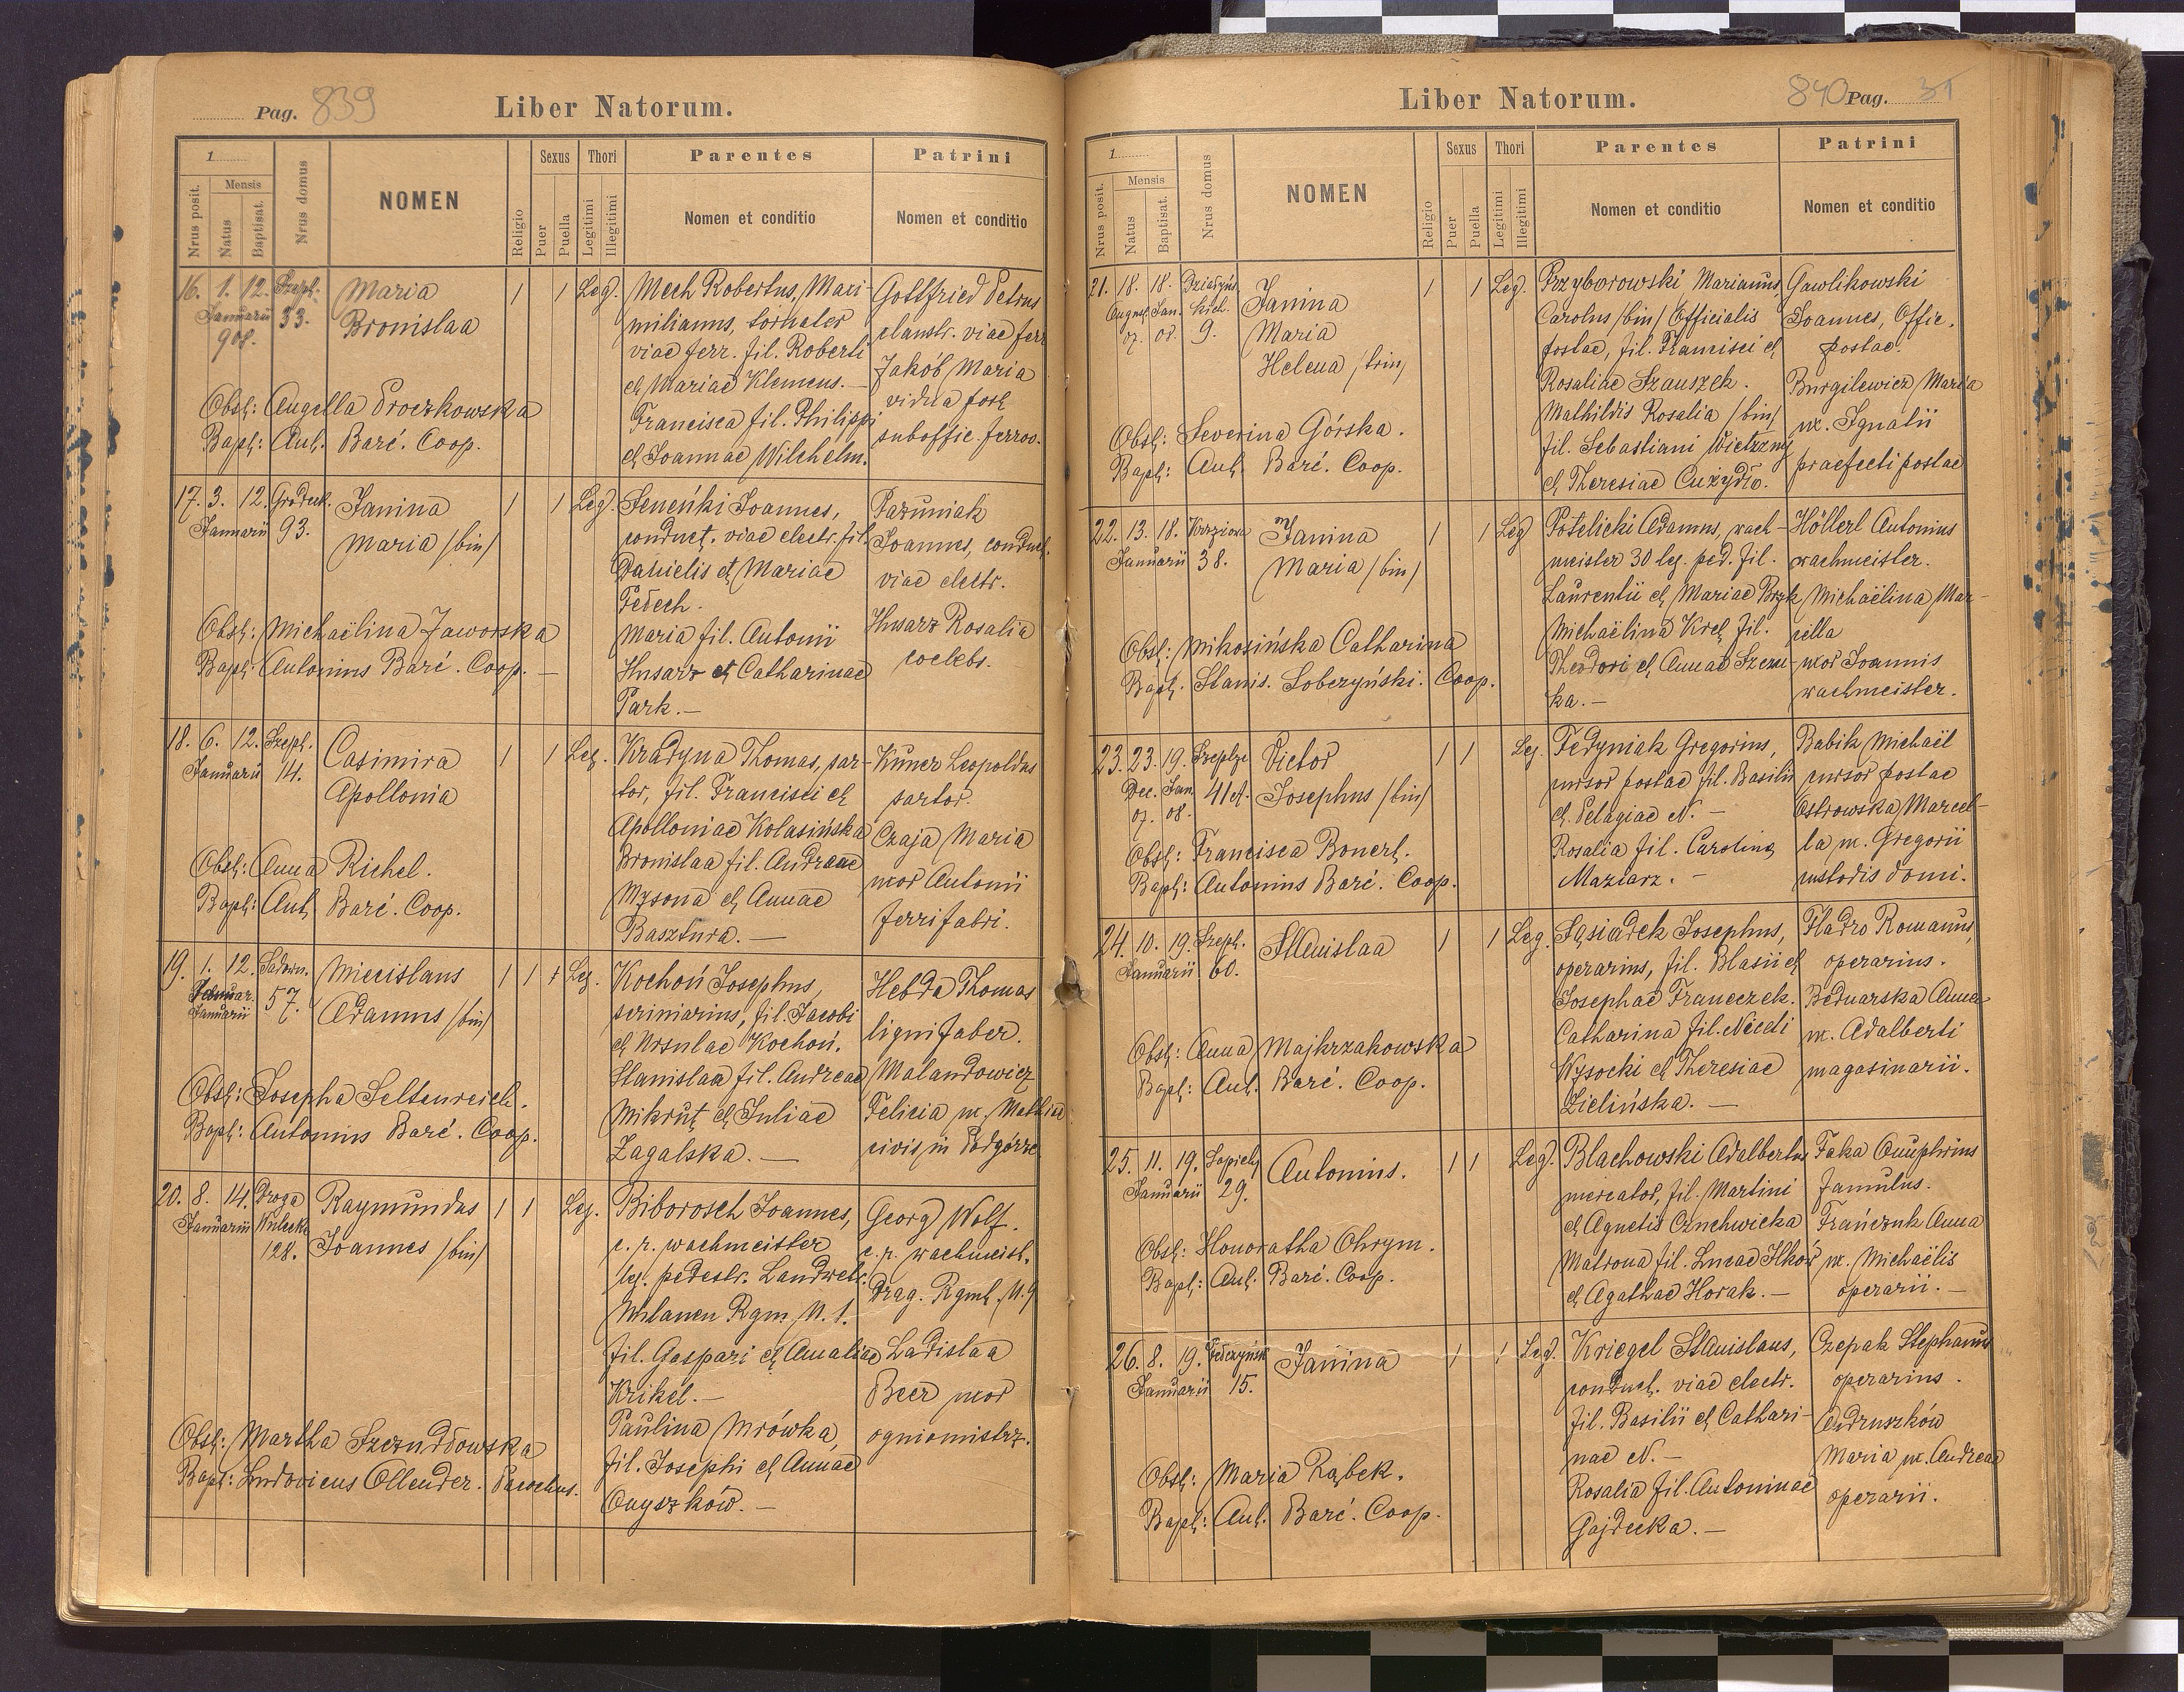 Pag. 839
Liber Natorum.
1
Mensis
Nrus posit.
Natus
Baptisat.
Nrus domus
NOMEN
Religio
Sexus
Puer
Puella
Thori
Legitimi
Illegitimi
Parentes
Nomen et conditio
Patrini
Nomen et conditio
16. 1. 12. Szept. 33.
Januarii
908.
Maria
Bronislaa
1 1 Leg.
Mech Robertus, Maxi-
milianus, tornator
viae ferr. fil. Roberti
et Mariae Klemens.—
Francisca fil. Philippi
et Joannae Wilchelm.
Gottfried Petrus
claustr. viae ferr
Jakób Maria
vidua post
suboffic. ferrov.
Obst: Angella Proczkowska
Bapt: Ant. Baré. Coop.
17. 3. 12. Grodeck. 93.
Januarii
Janina
Maria /bin/
1 1 Leg.
Seneńki Joannes,
conduct. viae electr. fil.
Danielis et Mariae
Fedech.
Maria fil. Antonii
Husarz et Catharinae
Park.—
Paruniak
Joannes, conduct.
viae electr.
Husarz Rosalia
coelebs.
Obst: Michaëlina Jaworska
Bapt: Antonius Baré. Coop.—
18. 6. 12. Szept. 14.
Januarii
Casimira
Apollonia
1 1 Leg.
Kradyna Thomas, sar-
tor, fil. Francisci et
Apolloniae Kolasińska
Bronislaa fil. Andreae
Wysona et Annae
Basztura.—
Kuner Leopoldus
sartor.
Czaja Maria
uxor Antonii
ferrifabri.
Obst: Anna Richel.
Bapt: Ant. Baré. Coop.
19. 1. 12. Sadown. 57.
Februar.
Januarii
Miecislaus
Adamus /bin/
1 1 Leg.
Kochoń Josephus,
scriniarius, fil. Jacobi
et Ursulae Kochoń.
Stanislaa fil. Andreae
Mikrut et Juliae
Zagalska.—
Hebda Thomas
lignifaber.
Malandowicz
Felicia ux. Mathiae
civis in Podgórze
Obst: Josepha Seltenreich.
Bapt: Antonius Baré. Coop.
20. 8. 14. Droga Wulecka 128.
Januarii
Raymundus
Joannes /bin/
1 1 Leg.
Biborosch Joannes,
c. r. wachmeister
leg. pedestr. Landwehr
Uhlanen Rgm. N. 1.
fil. Gaspari et Amaliae
Krikel.—
Paulina Mrówka,
fil. Josephi et Annae
Onyszków.—
Georg Wolf.
c. r. wachmeist.
Drag. Rgmt. N. 9
Ladislaa
Beer uxor
ogniomistrz.
Obst: Martha Szczudłowska
Bapt: Ludovicus Ollender. Parochus.
Liber Natorum.
840 Pag. 31
1
Mensis
Nrus posit.
Natus
Baptisat.
Nrus domus
NOMEN
Religio
Sexus
Puer
Puella
Thori
Legitimi
Illegitimi
Parentes
Nomen et conditio
Patrini
Nomen et conditio
21. 18. 18. 9.
August. Jan.
07. 08.
Janina
Maria
Helena /trin/
1 1 Leg.
Przyborowski Marianus,
Carolus /bin/ Officialis
postae, fil. Francisci et
Rosaliae Szauszek.
Mathildis Rosalia /bin/
fil. Sebastiani Wietrzny
et Theresiae Cużydło.
Gawlikowski
Joannes, Offic.
postae.
Burgilewicz Maria
ux. Ignatii
praefecti postae
Obst: Severina Górska.
Bapt: Ant. Baré. Coop.
22. 13. 18. 38.
Januarii
Janina
Maria /bin/
1 1 Leg
Potelicki Adamus, wach-
meister 30 leg. ped. fil.
Laurentii et Mariae Bryk
Michaëlina Kret fil.
Theodori et Annae Szew-
ka.—
Höllerl Antonius
wachmeister.
Michaëlina Mar-
cella
uxor Joannis
wachmeister.
Obst: Mikosińska Catharina
Bapt. Stanis. Sobczyński. Coop.
23. 23. 19. 41A.
Dec. Jan.
07. 08.
Victor
Josephus /bin/
1 1 Leg.
Fedyniak Gregorius,
cursor postae fil. Basilii
et Pelagiae N.—
Rosalia fil. Carolina
Maziarz.—
Babik Michaël
cursor postae
Ostrowska Marcel-
la ux. Gregorii
custodis domi.
Obst: Francisca Bonert.
Bapt: Antonius Baré. Coop.
24. 10. 19. Szept. 60.
Januarii
Stanislaa
1 1 Leg.
Sąsiadek Josephus,
operarius, fil. Blasii et
Josephae Franeczek.
Catharina fil.
Wysocki et Theresiae
Zielińska.—
Hadro Romanus,
operarius.
Bednarska Anna
ux. Adalberti
magasinarii.
Obst: Anna Majkrzakowska
Bapt: Ant. Baré. Coop.
25. 11. 19. Sapiehy 29.
Januarii
Antonius.
1 1 Leg.
Blachowski Adalbertus
mercator, fil. Martini
et Agnetis Cznchwicka
Matrona fil. Lucae Ilków
et Agathae Horak.—
Faka Onuphrius
famulus.
Frańczuk Anna
ux. Michaëlis
operarii.—
Obst: Honoratha Chrym.
Bapt: Ant. Baré. Coop.
26. 8. 19. 15.
Januarii
Janina
1 1 Leg.
Kriegel Stanislaus,
conduct. viae electr.
fil. Basilii et Cathari-
nae N.—
Rosalia fil. Antoninae
Gajdecka.—
Czepak Stephanus
operarius.
Andruszków
Maria ux. Andreae
operarii.
Obst: Maria Rąbek.
Bapt: Ant. Baré. Coop.